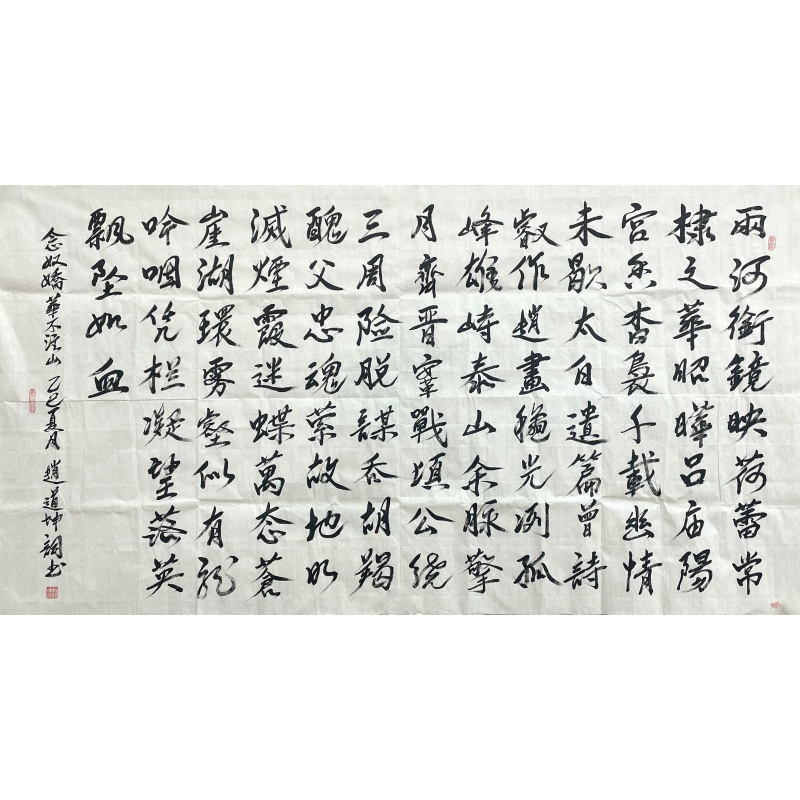 兩河銜鏡映荷蕾常
棣之華昭曄呂庙陽
宮杳裊千載幽情
未歇太白遺篇曾詩
叡作趙畫穐光冽孤
峰雄峙泰山余脈擎
月齊晉鞌戰頃公繞
三周險脫謀吞胡羯
醜父忠魂縈故地明
滅煙霞迷蝶萬态蒼
崖湖環雾壑似有龍
吟咽凭栏凝望落英
飄墜如血
念奴嬌 華不注山 乙巳夏月 趙道坤詞书